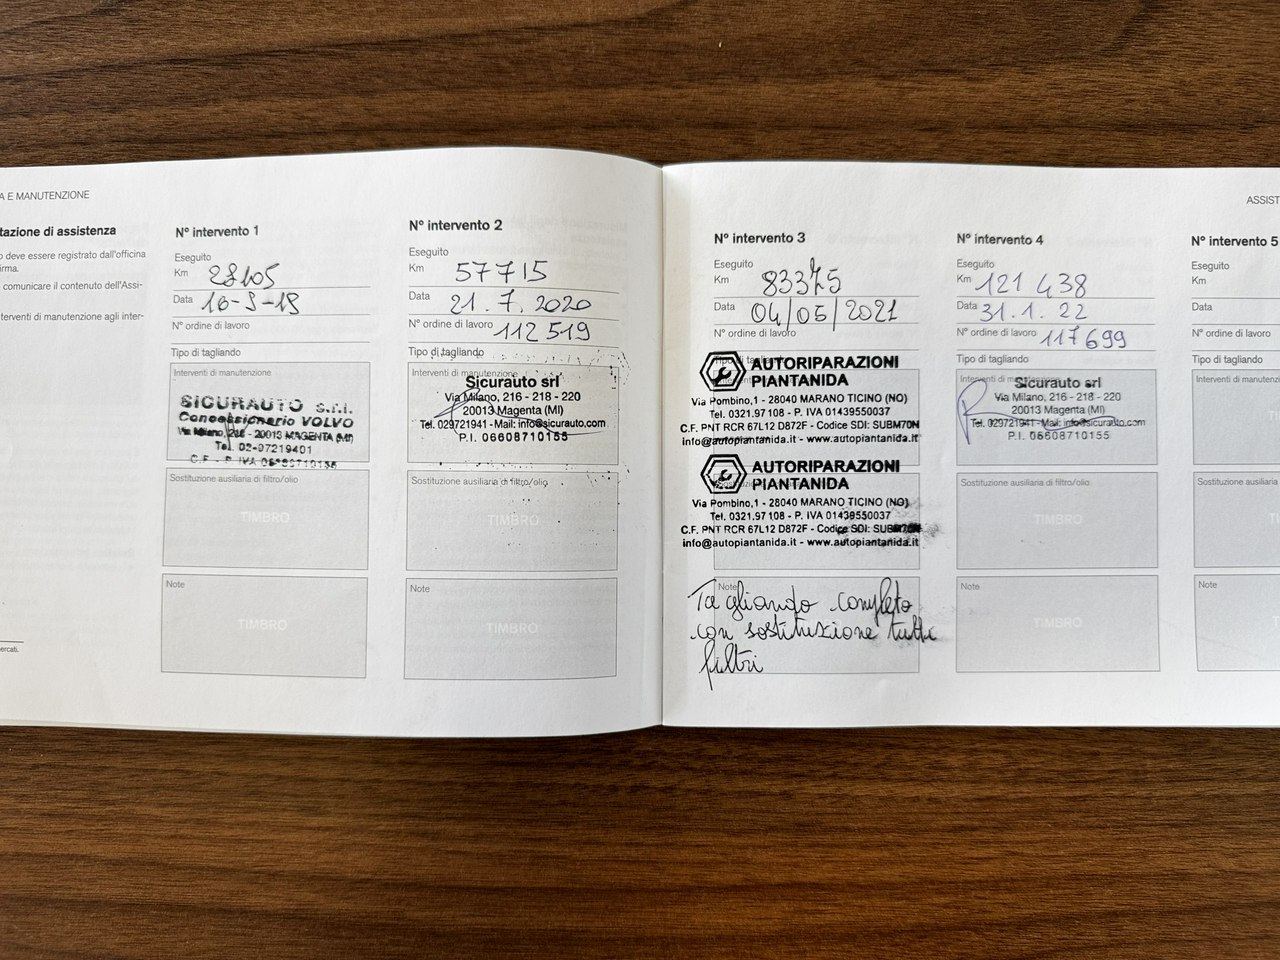 A E MANUTENZIONE
tazione di assistenza
o deve essere registrato dall'officina
irma.
comunicare il contenuto dell'Assi-
nterventi di manutenzione agli inter-
ercati.
Nº intervento 1
Eseguito
Km
Data
Nº ordine di lavoro
Tipo di tagliando
Interventi di manutenzione
SICURAUTO s.r.l.
Concessionario VOLVO
Via Milano, 216 - 20013 MAGENTA (MI)
Tel. 02-97219401
C.F. - P. IVA 06608710155
Sostituzione ausiliaria di filtro/olio
TIMBRO
Note
TIMBRO
Nº intervento 2
Eseguito
Km 57715
Data 21.7.2020
Nº ordine di lavoro 112519
Tipo di tagliando
Interventi di manutenzione
Sicurauto srl
Via Milano, 216 - 218 - 220
20013 Magenta (MI)
Tel. 029721941 - Mail: info@sicurauto.com
P.I. 06608710155
Sostituzione ausiliaria di filtro/olio
TIMBRO
Note
TIMBRO
ASSIST
Nº intervento 3
Eseguito
Km 83375
Data 04/05/2021
Nº ordine di lavoro
Tipo di tagliando
AUTORIPARAZIONI
PIANTANIDA
Via Pombino,1 - 28040 MARANO TICINO (NO)
Tel. 0321.97108 - P. IVA 01439550037
C.F. PNT RCR 67L12 D872F - Codice SDI: SUBM70N
info@autopiantanida.it - www.autopiantanida.it
AUTORIPARAZIONI
PIANTANIDA
Via Pombino,1 - 28040 MARANO TICINO (NO)
Tel. 0321.97108 - P. IVA 01439550037
C.F. PNT RCR 67L12 D872F - Codice SDI:
info@autopiantanida.it - www.autopiantanida.it
Note
Tagliando completo
con sostituzione tutti
filtri
Nº intervento 4
Eseguito
Km 121438
Data 31.1.22
Nº ordine di lavoro 117699
Tipo di tagliando
Interventi di manutenzione
Sicurauto srl
Via Milano, 216 - 218 - 220
20013 Magenta (MI)
Tel. 029721941 - Mail: info@sicurauto.com
P.I. 06608710155
Sostituzione ausiliaria di filtro/olio
TIMBRO
Note
TIMBRO
Nº intervento 5
Eseguito
Km
Data
Nº ordine di lavoro
Tipo di tagliando
Interventi di manutenz
Sostituzione ausiliaria
Note